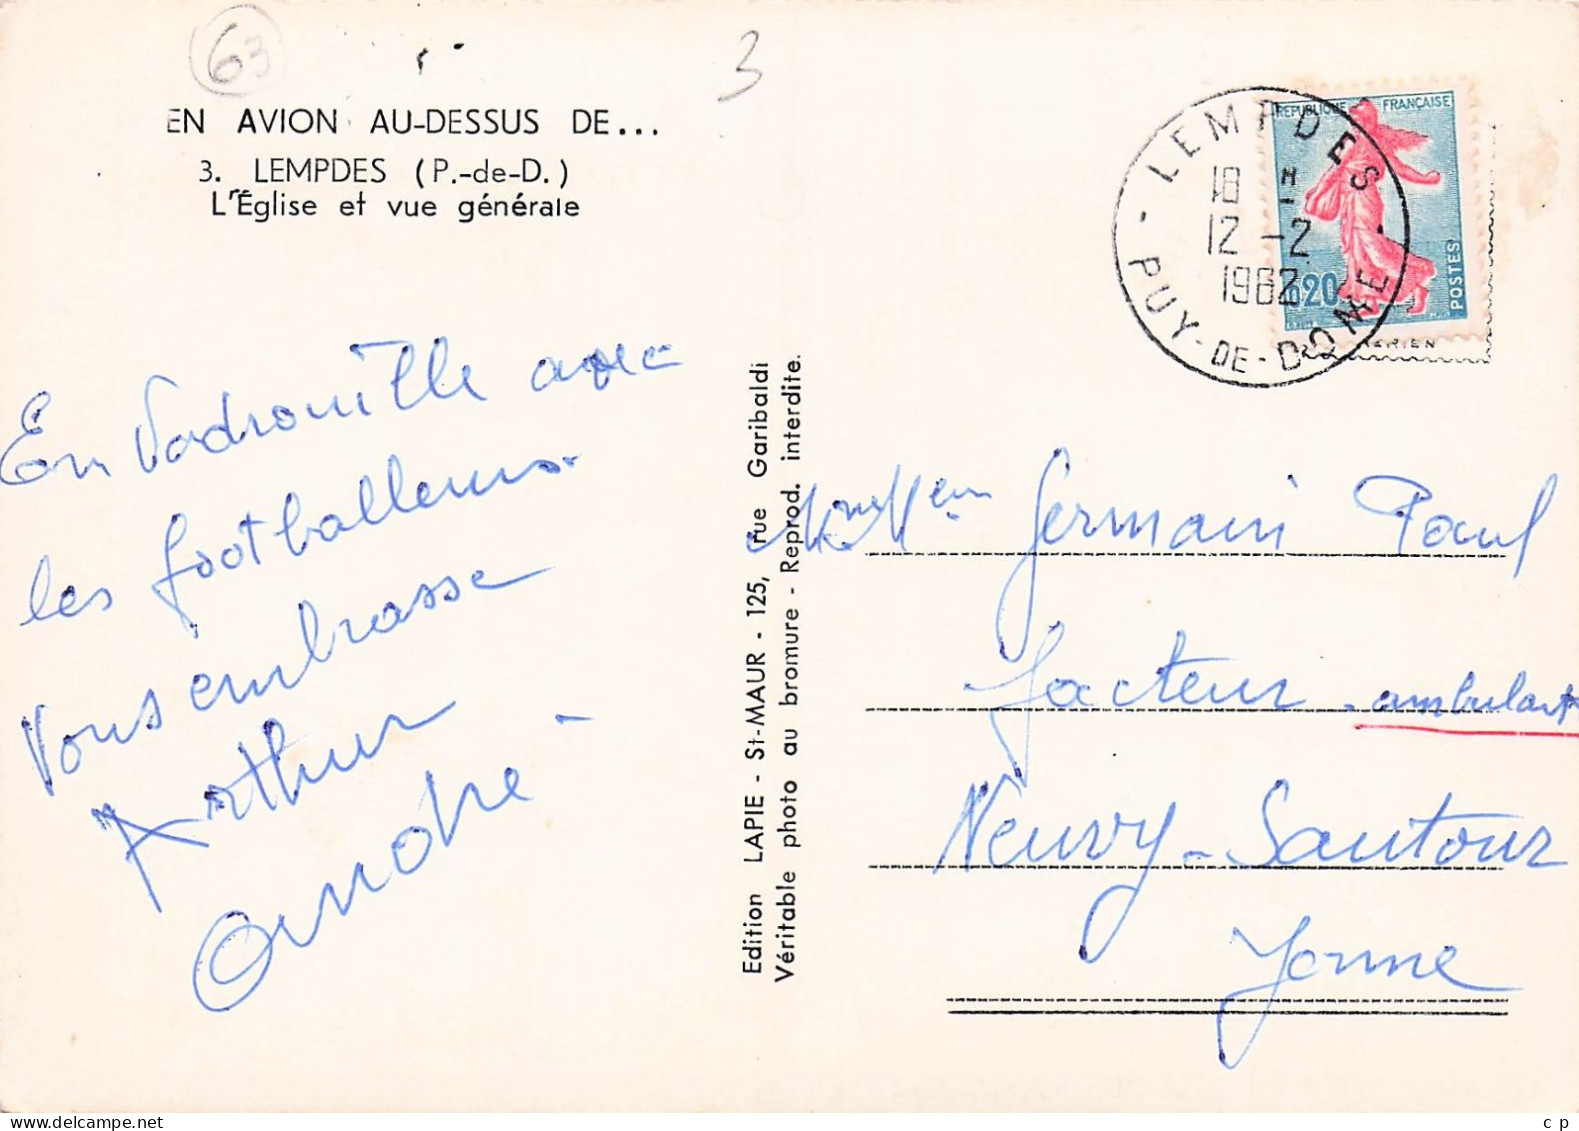 63
3
EN AVION AU-DESSUS DE...
3. LEMPDES (P.-de-D.)
L'Église et vue générale
En Vadrouille avec
les footballeurs.
Vous embrasse
Arthur
André
Edition LAPIE - St-MAUR - 125, rue Garibaldi
Véritable photo au bromure - Reprod. interdite.
REPUBLIQUE FRANÇAISE
0,20
POSTES
LEMPDES
18 H
12 -2
1962
PUY-DE-DOME
Germain Paul
facteur - ambulant
Neuvy-Sautour
Yonne
www.delcampe.net
c p